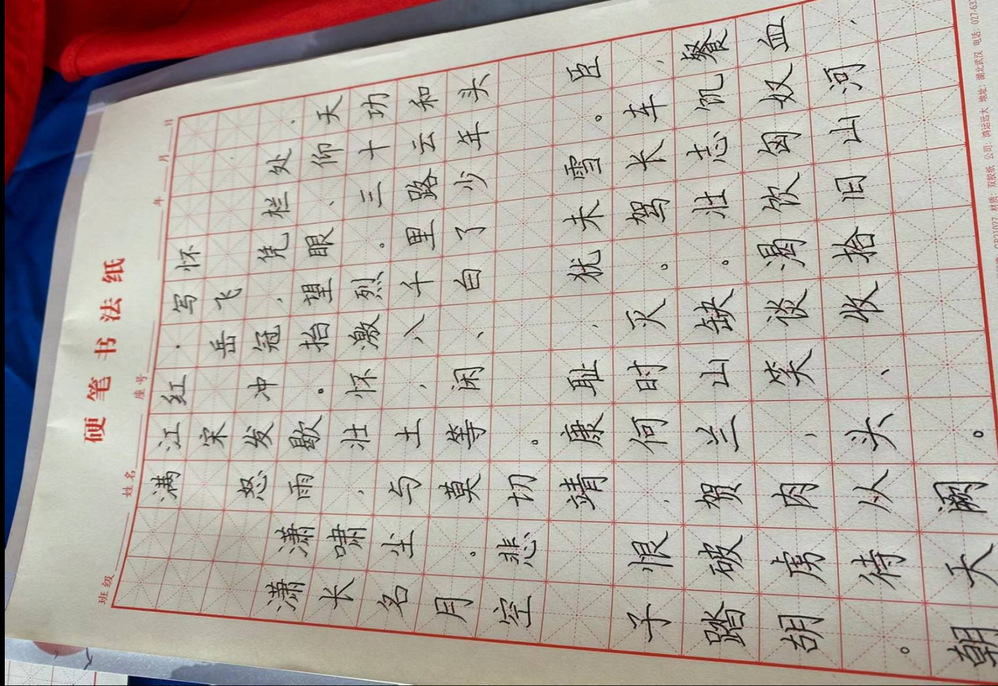 硬笔书法纸
班级 姓名 座号 年 月 日
满江红·写怀
宋 岳飞
怒发冲冠,凭栏处、
潇潇雨歇。抬望眼、仰天
长啸,壮怀激烈。三十功
名尘与土,八千里路云和
月。莫等闲、白了少年头
空悲切。
靖康耻,犹未雪。臣
子恨,何时灭。驾长车,
踏破贺兰山缺。壮志饥餐
胡虏肉,笑谈渴饮匈奴血
。待从头、收拾旧山河,
朝天阙。
材质:双胶纸 公司:鸿运远大 地址:湖北武汉 电话:027-63